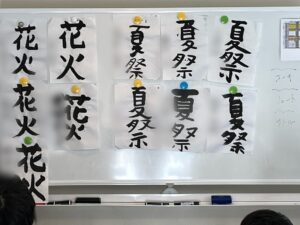 花火
花火
夏祭
夏祭
夏祭
花火
花火
夏祭
夏祭
夏祭
花火